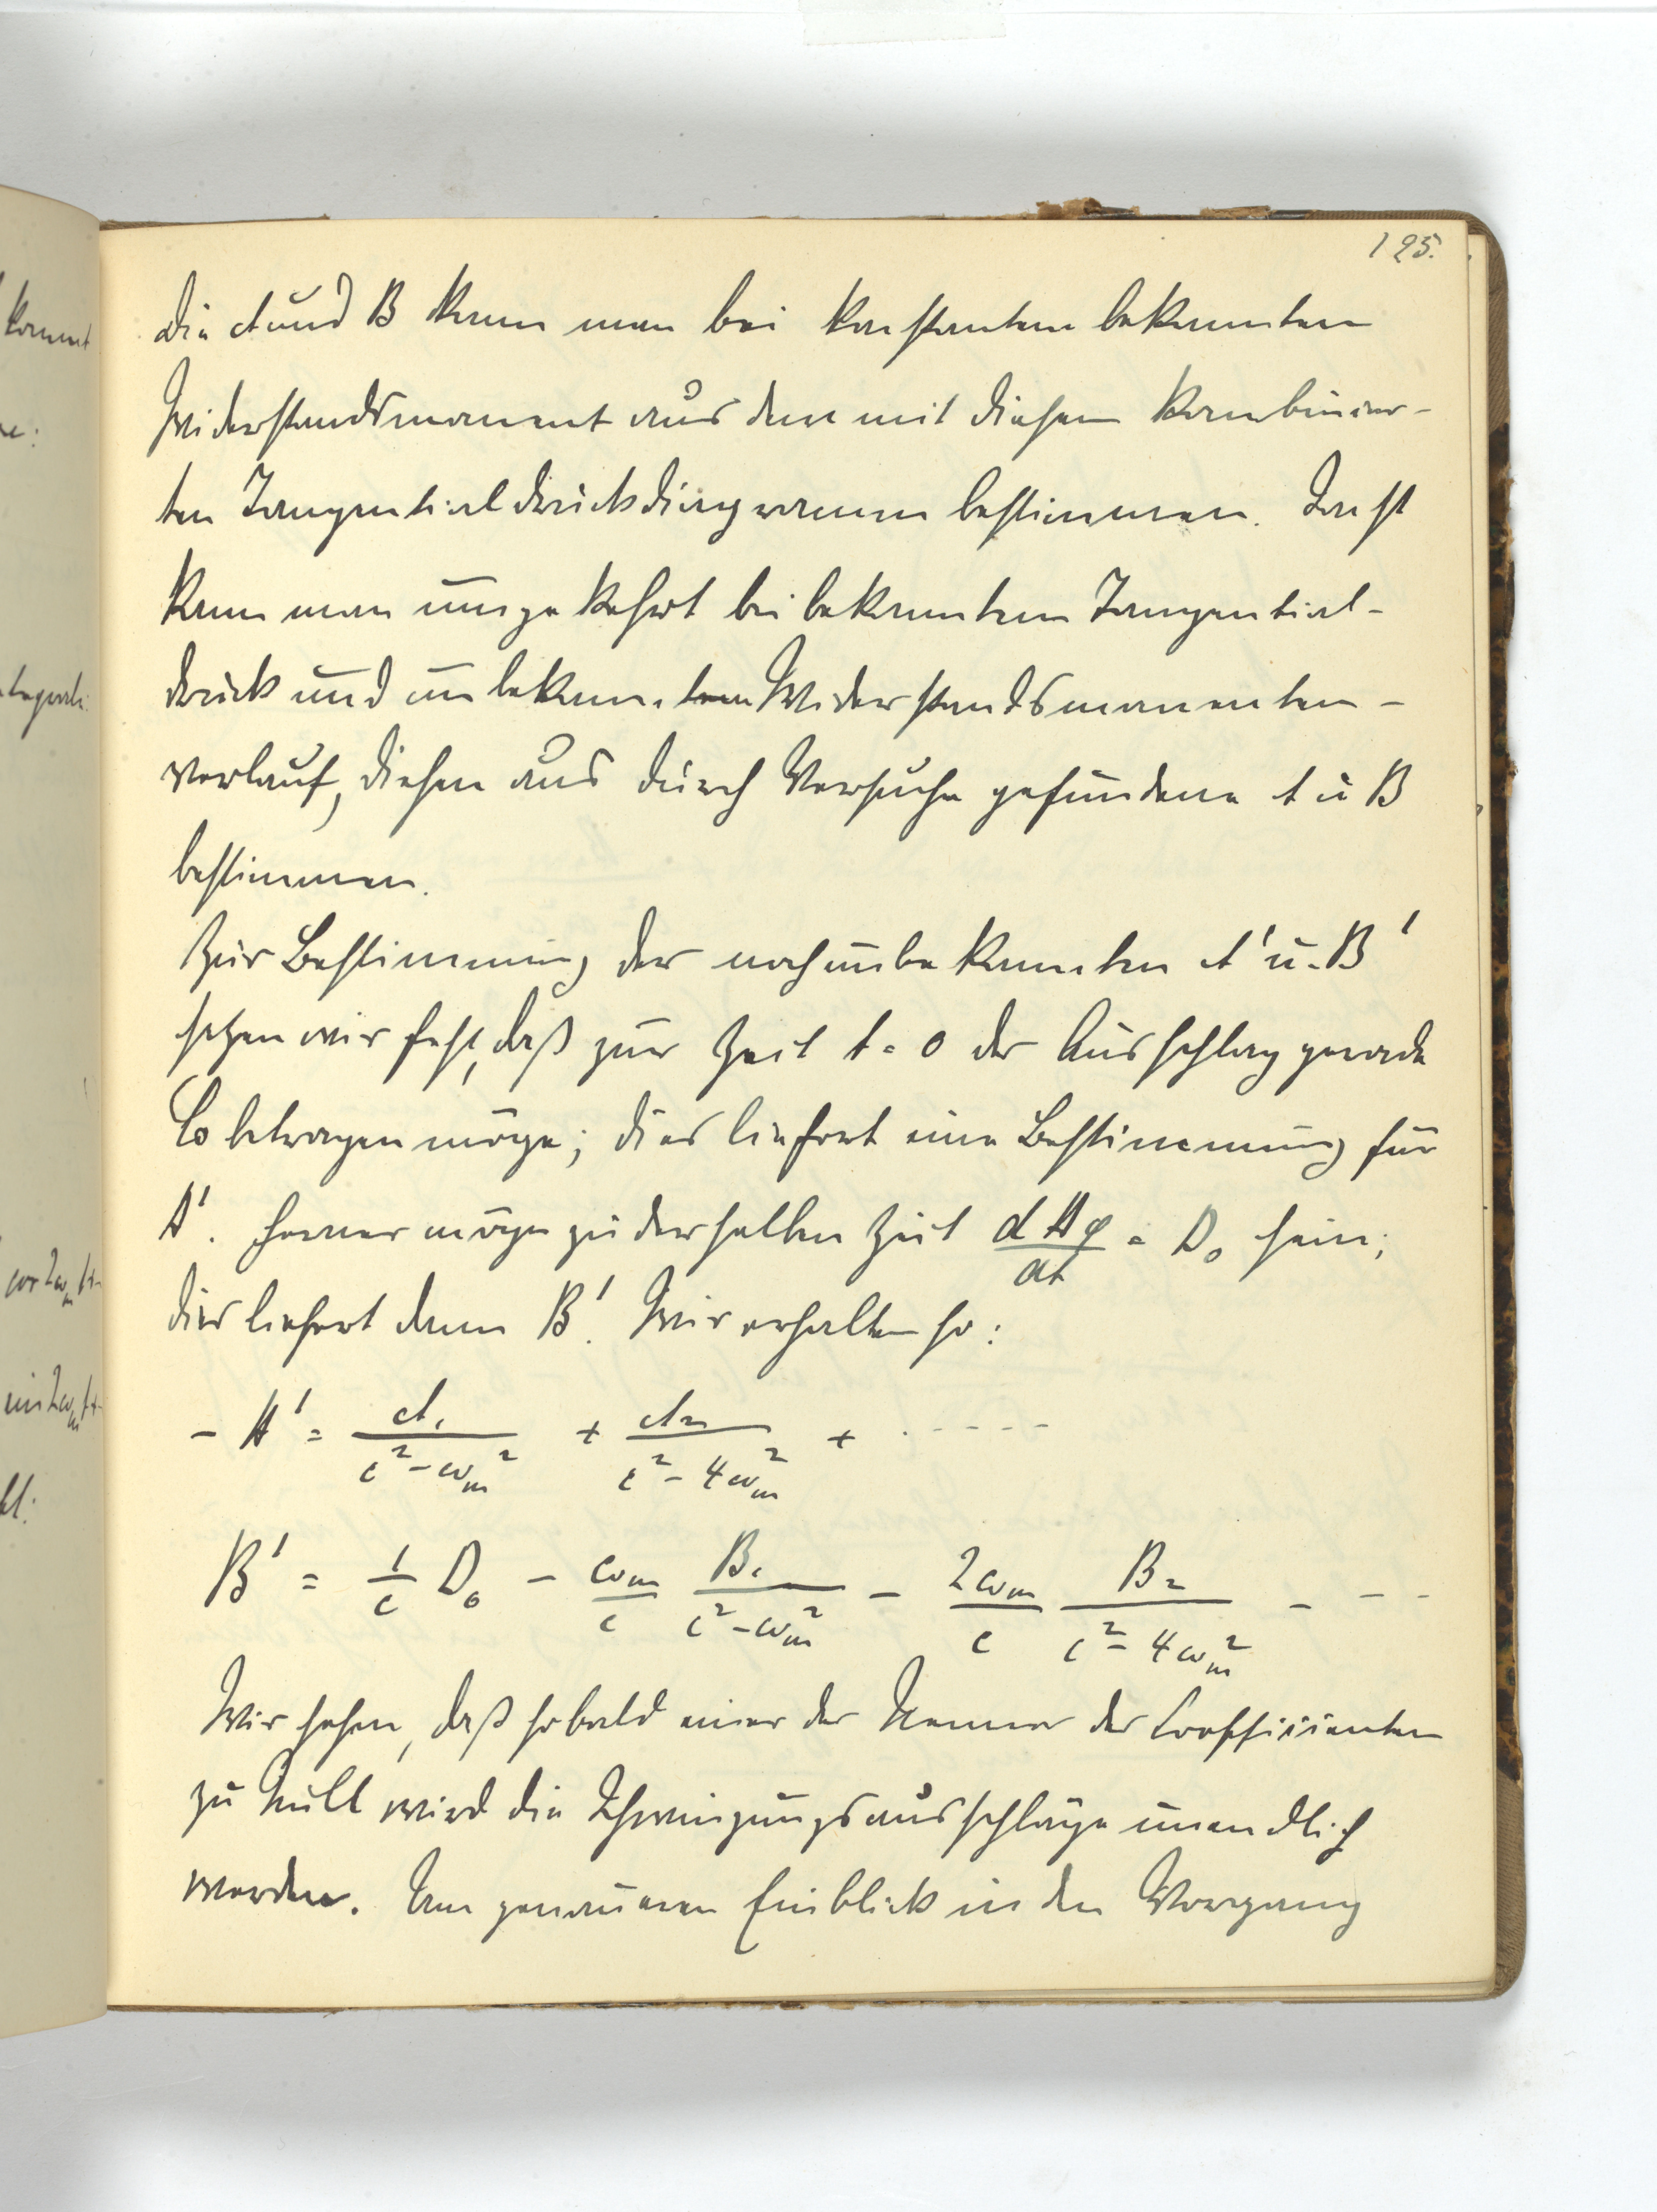 125.
Die A und B kann man bei konstantem bekannten
Widerstandsmoment aus dem mit diesem kombinier-
ten Tangentialdruckdiagramm bestimmen. Sonst
kann man umgekehrt bei bekanntem Tangential-
druck und unbekanntem Widerstandsmomenten-
verlauf, diesen aus durch Versuche gefundene A u B
bestimmen.
Zur Bestimmung der noch unbekannten A' u. B'
setzen wir fest, daß zur Zeit t = 0 der Ausschlag gerade
C₀ betragen möge; dies liefert eine Bestimmung für
A'. Ferner möge zu derselben Zeit dΔφ/dt = D₀ sein;
dies liefert dann B'. Wir erhalten so:
- A' = A₁/(c² - ω_m²) + A₂/(c² - 4ω_m²) + · - - - -
B' = 1/c D₀ - ω_m/c B₁/(c² - ω_m²) - 2ω_m/c B₂/(c² - 4ω_m²) - - - -
Wir sehen, daß sobald einer der Nenner der Coeffizienten
zu Null wird die Schwingungsausschläge unendlich
werden. Um genaueren Einblick in den Vorgang
kommt